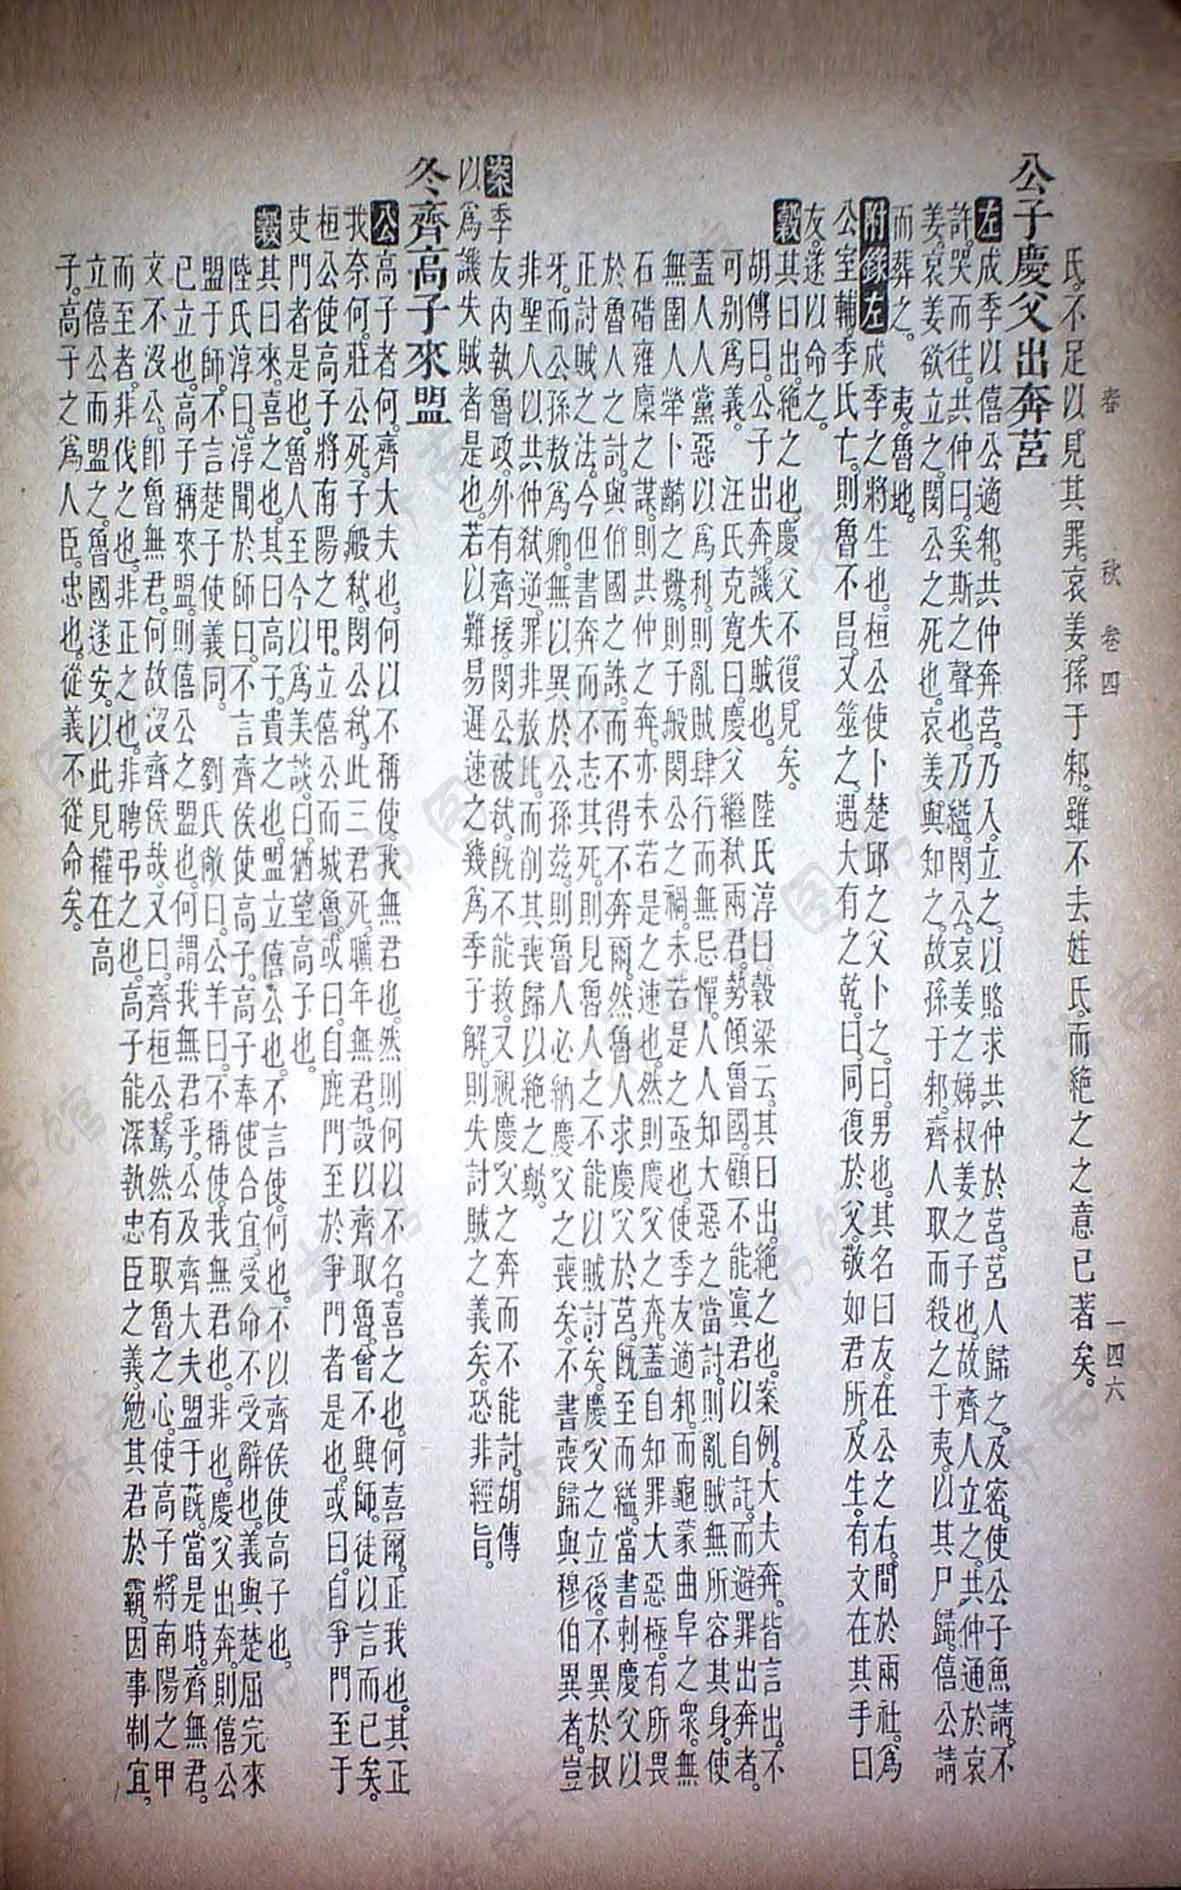 春秋 卷四 一四六
氏。不足以見其罪。哀姜孫于邾。雖不去姓氏。而絕之之意已著矣。
公子慶父出奔莒
左 成季以僖公適邾。共仲奔莒。乃入。立之。以賂求共仲於莒。莒人歸之。及密。使公子魚請。不
許。哭而往。共仲曰。奚斯之聲也。乃縊。閔公。哀姜之娣叔姜之子也。故齊人立之。共仲通於哀
姜。哀姜欲立之。閔公之死也。哀姜與知之。故孫于邾。齊人取而殺之于夷。以其尸歸。僖公請
而葬之。 夷。魯地。
附錄左 成季之將生也。桓公使卜楚邱之父卜之。曰。男也。其名曰友。在公之右。間於兩社。爲
公室輔。季氏亡。則魯不昌。又筮之。遇大有之乾。曰。同復於父。敬如君所。及生。有文在其手曰
友。遂以命之。
穀 其曰出。絕之也。慶父不復見矣。
胡傳曰。公子出奔。譏失賊也。 陸氏淳曰。穀梁云。其曰出。絕之也。案例。大夫奔。皆言出。不
可別爲義。 汪氏克寬曰。慶父繼弒兩君。勢傾魯國。顧不能寘君以自託。而避罪出奔者。
蓋人人黨惡以爲利。則亂賊肆行而無忌憚。人人知大惡之當討。則亂賊無所容其身。使
無圉人犖卜齮之釁。則子般閔公之禍。未若是之亟也。使季友適邾。而龜蒙曲阜之衆。無
石碏雍廩之謀。則共仲之奔。亦未若是之速也。然則慶父之奔。蓋自知罪大惡極。有所畏
於魯人之討。與伯國之誅。而不得不奔爾。然魯人求慶父於莒。旣至而縊。當書刺慶父以
正討賊之法。今但書奔而不志其死。則見魯人之不能以賊討矣。慶父之立後。不異於叔
牙。而公孫敖爲卿。無以異於公孫茲。則魯人必納慶父之喪矣。不書喪歸。與穆伯異者。豈
非聖人以共仲弒逆。罪非敖比。而削其喪歸以絕之歟。
案 季友內執魯政。外有齊援。閔公被弒。旣不能救。又視慶父之奔而不能討。胡傳
以爲譏失賊者是也。若以難易遲速之幾爲季子解。則失討賊之義矣。恐非經旨。
冬齊高子來盟
公 高子者何。齊大夫也。何以不稱使。我無君也。然則何以不名。喜之也。何喜爾。正我也。其正
我奈何。莊公死。子般弒。閔公弒。此三君死。曠年無君。設以齊取魯。曾不興師。徒以言而已矣。
桓公使高子將南陽之甲。立僖公而城魯。或曰。自鹿門至於爭門者是也。或曰。自爭門至于
吏門者是也。魯人至今以爲美談。曰。猶望高子也。
穀 其曰來。喜之也。其曰高子。貴之也。盟立僖公也。不言使。何也。不以齊侯使高子也。
陸氏淳曰。淳聞於師曰。不言齊侯使高子。高子奉使合宜。受命不受辭也。義與楚屈完來
盟于師。不言楚子使義同。 劉氏敞曰。公羊曰。不稱使。我無君也。非也。慶父出奔。則僖公
已立也。高子稱來盟。則僖公之盟也。何謂我無君乎。公及齊大夫盟于蔇。當是時。齊無君。
文不沒公。卽魯無君。何故沒齊侯哉。又曰。齊桓公驁然有取魯之心。使高子將南陽之甲
而至者。非伐之也。非正之也。非聘弔之也。高子能深執忠臣之義。勉其君於霸。因事制宜。
立僖公而盟之。魯國遂安。以此見權在高
子。高子之爲人臣。忠也。從義不從命矣。